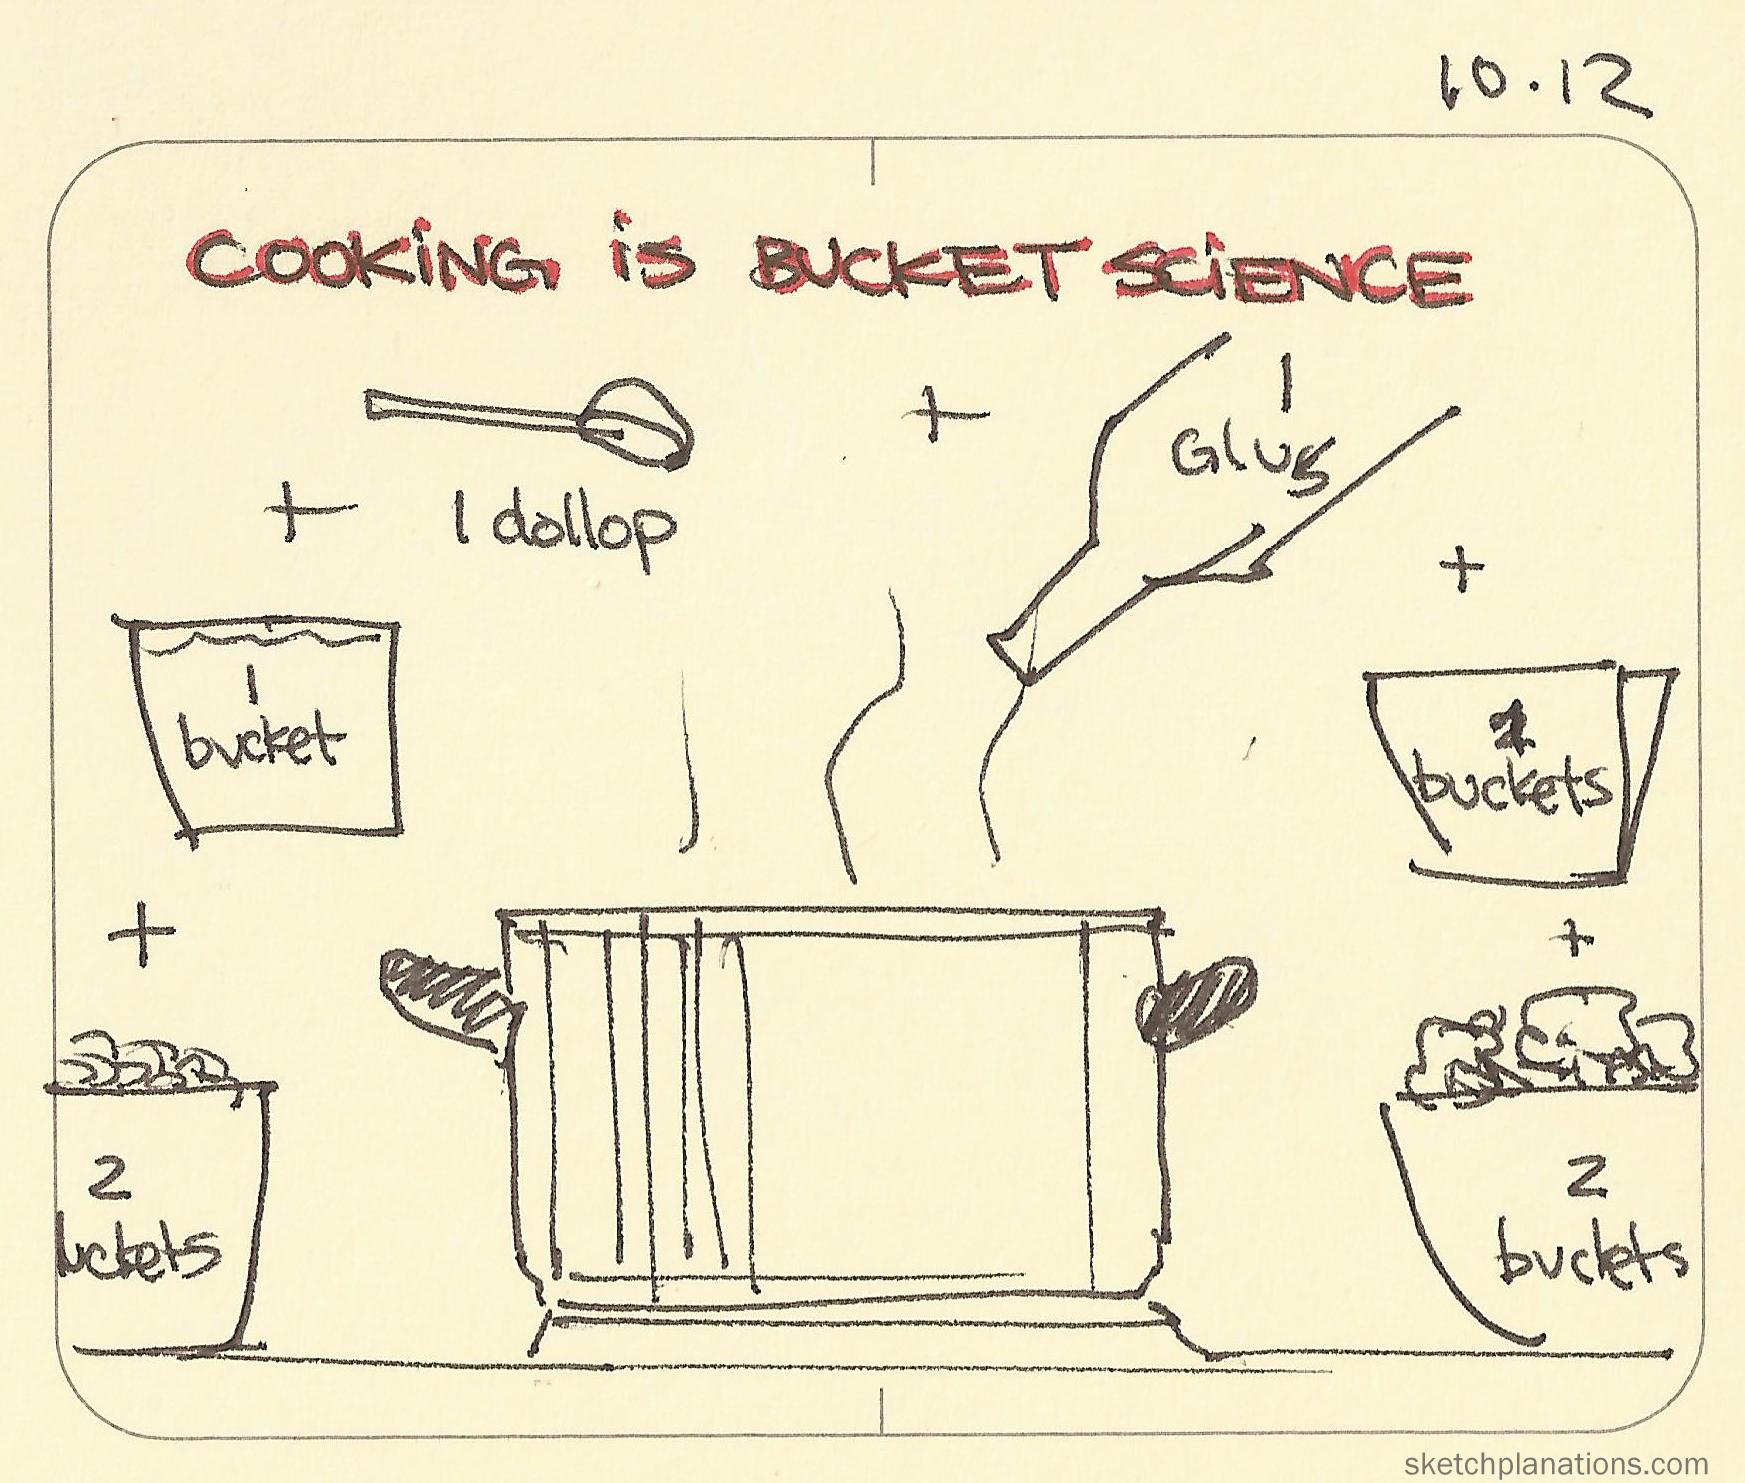 10.12
COOKING IS BUCKET SCIENCE
+
1 dollop
+
1
Glug
+
1
bucket
buckets
+
+
2
buckets
2
uckets
sketchplanations.com